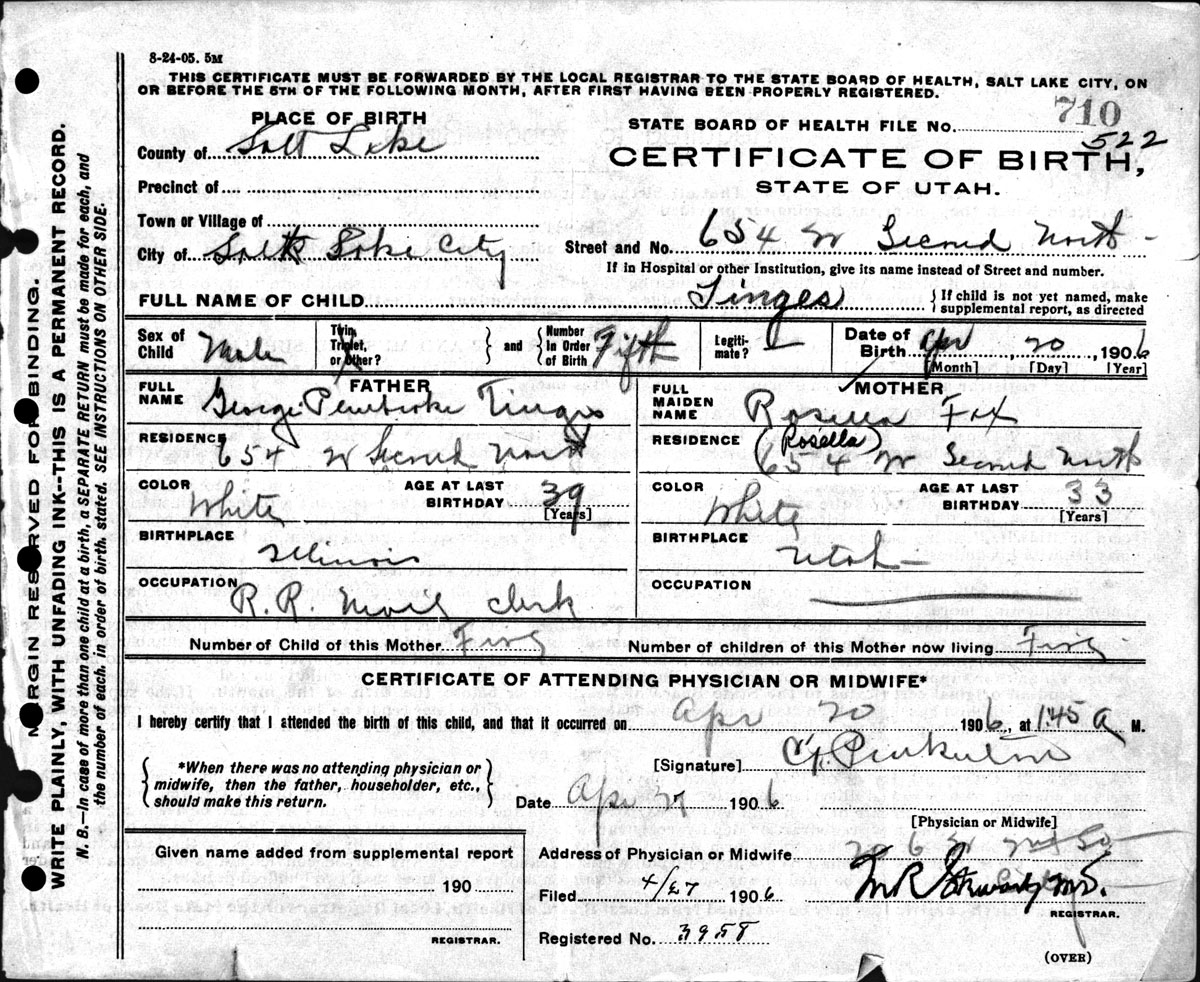 8-24-05. 5M
THIS CERTIFICATE MUST BE FORWARDED BY THE LOCAL REGISTRAR TO THE STATE BOARD OF HEALTH, SALT LAKE CITY, ON
OR BEFORE THE 5TH OF THE FOLLOWING MONTH, AFTER FIRST HAVING BEEN PROPERLY REGISTERED.
MARGIN RESERVED FOR BINDING.
WRITE PLAINLY, WITH UNFADING INK--THIS IS A PERMANENT RECORD.
N. B.—In case of more than one child at a birth, a SEPARATE RETURN must be made for each, and
the number of each, in order of birth, stated. SEE INSTRUCTIONS ON OTHER SIDE.
PLACE OF BIRTH
County of Salt Lake
Precinct of
Town or Village of
City of Salt Lake City
STATE BOARD OF HEALTH FILE No. 710
522
CERTIFICATE OF BIRTH,
STATE OF UTAH.
Street and No. 654 W Second North
If in Hospital or other Institution, give its name instead of Street and number.
FULL NAME OF CHILD Tinges { If child is not yet named, make
supplemental report, as directed
Sex of Child Male
Twin, Triplet, or other? } and { Number In Order of Birth Fifth
Legiti-mate?
Date of Birth Apr 20, 1906
[Month] [Day] [Year]
FATHER
FULL NAME George Pembroke Tinges
RESIDENCE 654 W Second North
COLOR White AGE AT LAST BIRTHDAY 39
[Years]
BIRTHPLACE Illinois
OCCUPATION R. R. Mail Clerk
MOTHER
FULL MAIDEN NAME Rosella Fox
(Rosella)
RESIDENCE 654 W Second North
COLOR White AGE AT LAST BIRTHDAY 33
[Years]
BIRTHPLACE Utah
OCCUPATION
Number of Child of this Mother Five Number of children of this Mother now living Five
CERTIFICATE OF ATTENDING PHYSICIAN OR MIDWIFE*
I hereby certify that I attended the birth of this child, and that it occurred on Apr 20 1906, at 1.45 A M.
{ *When there was no attending physician or
midwife, then the father, householder, etc.,
should make this return. }
[Signature]
Date Apr 27 1906
[Physician or Midwife]
Given name added from supplemental report
190
REGISTRAR.
Address of Physician or Midwife
Filed 4/27 1906
REGISTRAR.
Registered No. 3958
(OVER)